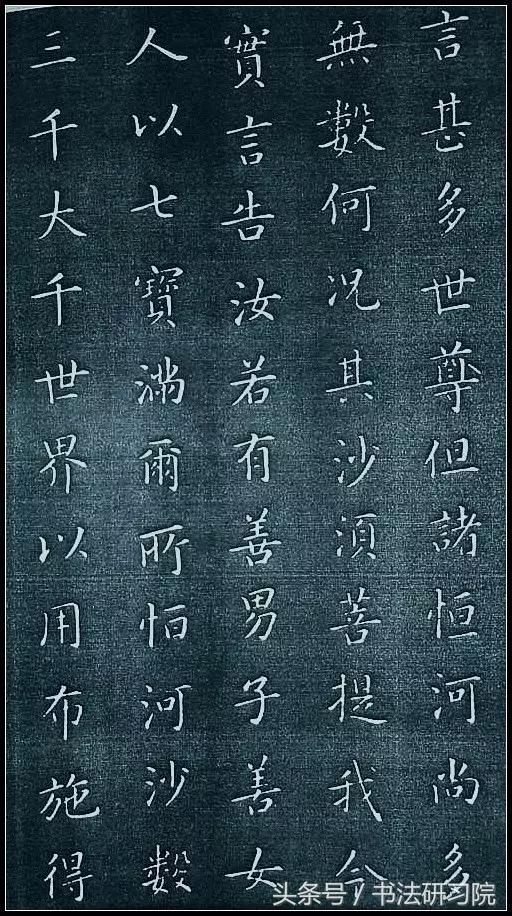 言甚多世尊但諸恒河尚多
無數何況其沙須菩提我今
實言告汝若有善男子善女
人以七寶滿爾所恒河沙數
三千大千世界以用布施得
头条号 / 书法研习院